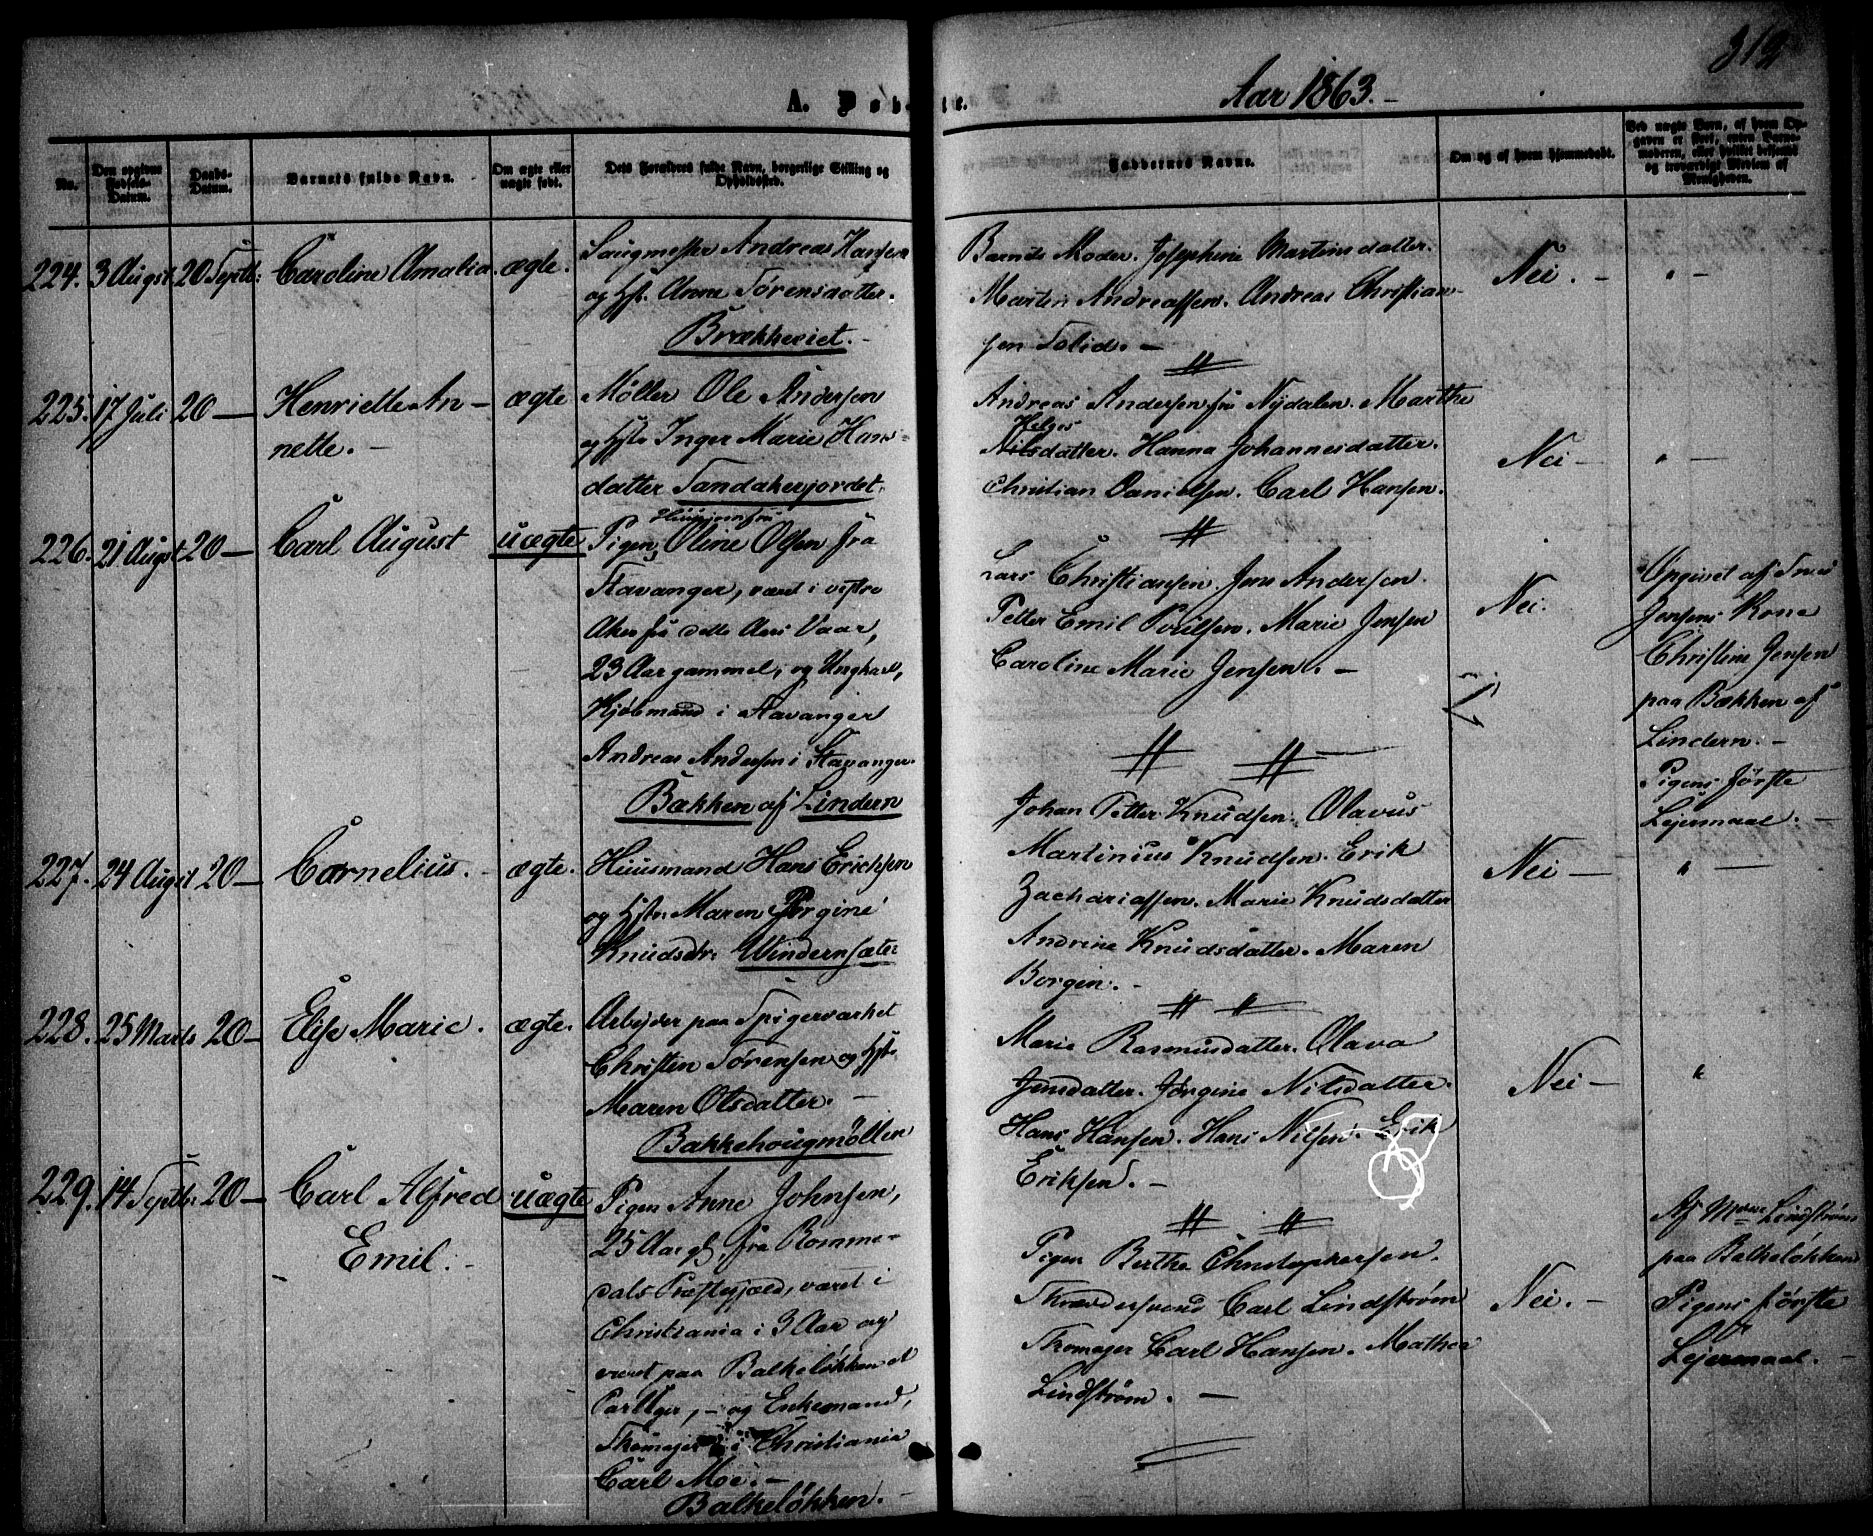 312
A. Døbte.
Aar 1863. –
No.
Den opgivne Fødsels-Datum.
Daabs-Datum.
Barnets fulde Navn.
Om ægte eller uægte født.
Dets Forældres fulde Navn, borgerlige Stilling og Opholdssted.
Faddernes Navne.
Om og af hvem hjemmedøbt.
Ved uægte Børn, af hvem Opgaven er skeet, uden Barnemoderen, eller hvilket bekjendt og troværdigt Medlem af Menigheden.
224. 3 Augst 20 Septbr: Caroline Amalia. ægte.
Saugmester Andreas Hansen
og Hst. Anne Sørensdatter.
Brækkeriet. –
Barnets Moder. Josephine Martinsdatter.
Martin Andreassen. Andreas Christian-
sen Solid. –
Nei. – " –
225. 17 Juli 20 – Henriette An-
nette. –
ægte
Møller Ole Andersen
og Hst. Inger Marie Hans-
datter Sandakerjordet.
Andreas Andersen fra Nydalen. Marthe
Helges
Nilsdatter. Hanna Johannesdatter.
Christian Danielsen. Carl Hansen.
Nei – " –
226. 21 Augst 20 – Carl August uægte
Pigen, Oline Olsen fra
Stavanger, været i vestre
Aker fra dette Aars Vaar,
23 Aar gammel, og Ungkarl,
Kjøbmand i Stavanger
Andreas Andersen i Stavanger.
Bækken af Lindern
Lars Christiansen. Jens Andersen.
Petter Emil Poulsen. Marie Jensen
Caroline Marie Jensen. –
Nei.
Opgivet af
Jensens Kone
Christine Jensen
paa Bækken af
Lindern. –
Pigens første
Lejermaal. –
227. 24 Augst 20 – Cornelius. – ægte.
Huusmand Hans Erichsen
og Hst. Maren Jørgine
Knudsdtr. Windernsæter
Johan Petter Knudsen. Olavus
Martinius Knudsen. Erik
Zachariassen. Marie Knudsdatter
Andrine Knudsdatter. Maren
Borgin. –
Nei – " –
228. 25 Marts 20 – Elise Marie. ægte.
Arbejder paa Spigerværket
Christen Sørensen og Hst.
Maren Olsdatter. –
Bakkehougmøllen
Marie Rasmusdatter. Olava
Jensdatter. Jørgine Nilsdatter.
Hans Hansen. Hans Nilsen. Erik
Eriksen. –
Nei – "
229. 14 Septbr: 20 – Carl Alfred
Emil. –
uægte
Pigen Anne Johnsen,
25 Aar gl, fra Romme-
dals Præstegjæld, været i
Christiania i 3 Aar og
været paa Balkeløkken et
Par Uger, – og Enkemand,
Skomager i Christiania
Carl Moe. –
Balkeløkken. –
Pigen Berthe Christophersen.
Skrædersvend Carl Lindstrøm
Skomager Carl Hansen. Mathea
Lindstrøm. –
Nei. –
Af Mme Lindstrøm
paa Balkeløkken
Pigens første
Lejermaal. –